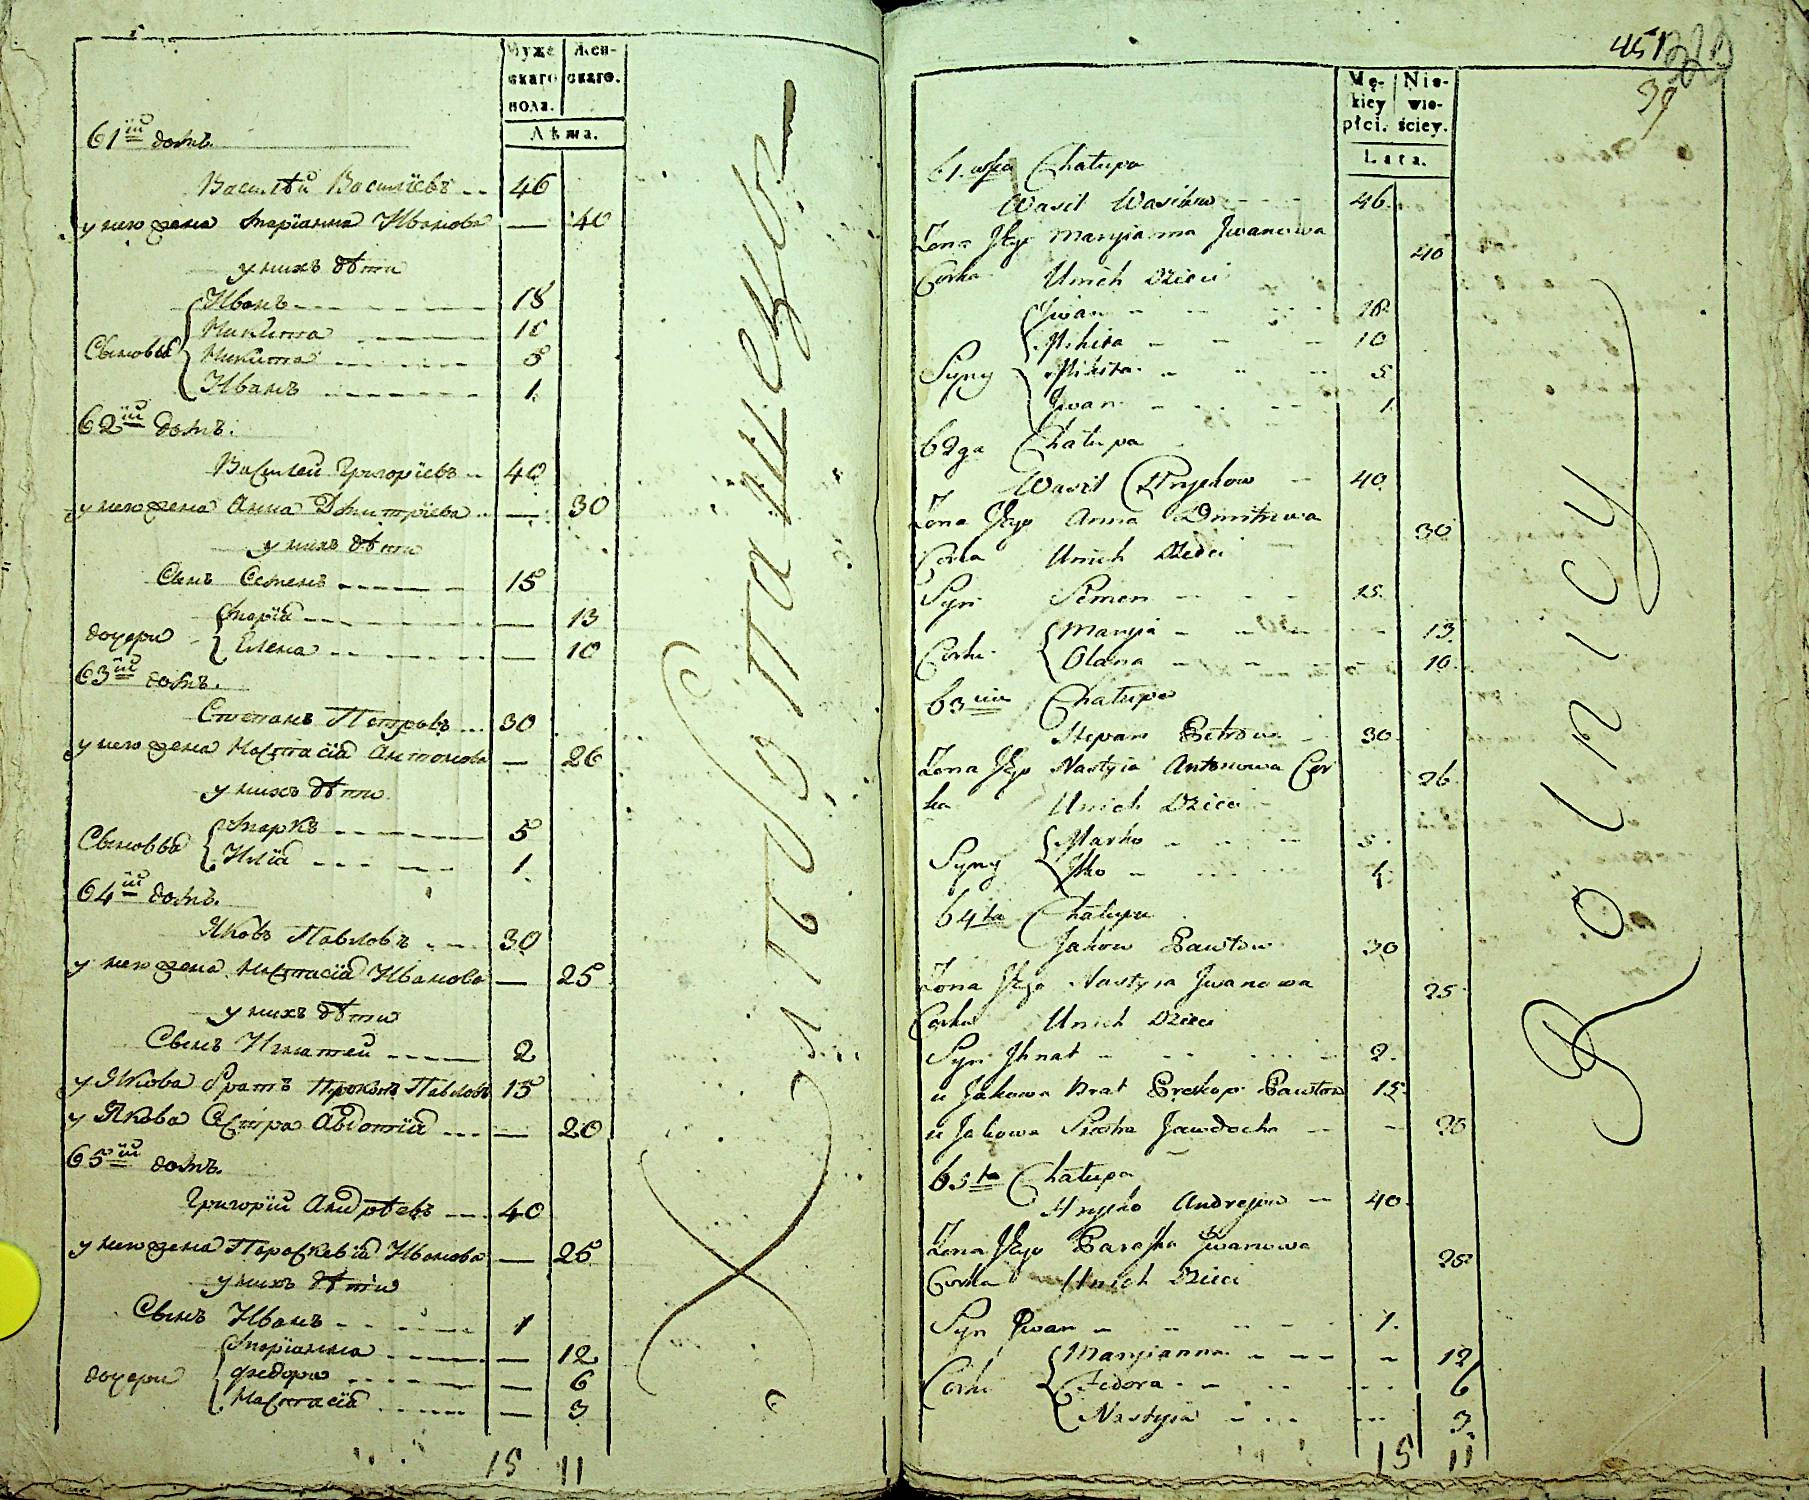 Муже
скаго
пола.
Жен-
скаго.
Лѣта.
61й домъ.
Василѣй Васильевъ 46
у него жена Маріанна Иванова — 40
у нихъ дѣти
Иванъ 18
Никита 10
Сыновья
Никита 5
Иванъ 1.
62й домъ.
Василей Григорьевъ 40
у него жена Анна Дмитріева — 30
у нихъ дѣти
Сынъ Семенъ 15
Марія — 13
дочери
Елена — 10
63й домъ.
Степанъ Петровъ 30
у него жена Настасія Антонова — 26
у нихъ дѣти
Маркъ 5
Сыновья
Илія 1
64й домъ.
Яковъ Павловъ 30
у него жена Настасія Иванова — 25
у нихъ дѣти
Сынъ Игнатей 2
у Якова братъ Прокопъ Павловъ 15
у Якова Сестра Авдотія — 20
65й домъ.
Григорій Андрѣевъ 40
у него жена Параскевія Иванова — 25
у нихъ дѣти
Сынъ Иванъ 1
Маріанна — 12
дочери
Федора — 6
Настасія — 3
15 11
451
39
Mę-
kiey
płci.
Nie-
wie-
ściey.
Lata.
61wsza Chałupa
Wasil Wasilow 46.
Zona Jego Maryianna Jwanowa 40
Corka Unich Dzieci
Jwan 18
Nikita 10
Syny
Nikita 5
Jwan 1.
62ga Chałupa
Wasil Hrychow 40
Zona Jego Anna Dmitrowa 30
Corka Unich Dzieci
Syn Semen 15.
Maryia 13.
Corki
Olana 10.
63cia Chałupa
Stepan Petrow 30.
Zona Jego Nastyia Antonowa Cor 26.
ka Unich Dzieci
Marko 5.
Syny
Jlko 1.
64ta Chałupa
Jakow Pawłow 30
Zona Jego Nastyia Jwanowa 25
Corka Unich Dzieci
Syn Jhnat 2.
u Jakowa Brat Prekop Pawłow 15.
u Jakowa Siostra Jawdocha 20
65ta Chałupa
Hryćko Andrejow 40.
Zona Jego Paraska Jwanowa 25
Corka Unich Dzieci
Syn Jwan 1.
Maryianna 12
Corki
Fedora 6
Nastyia 3.
15 11
Rolnicy